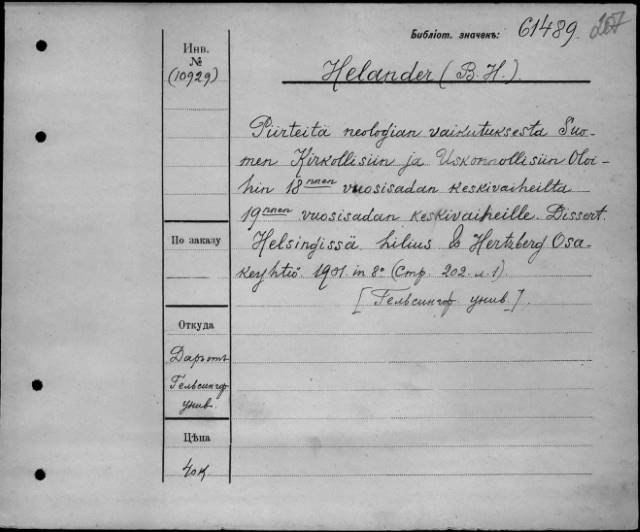 Библіот. значекъ: 61489. 207
Инв.
№
(10929)
Helander (B. H.).
Piirteitä neologian vaikutuksesta Suo-
men Kirkollisiin ja Uskonnollisiin Oloi-
hin 18nnen vuosisadan keskivaiheilta
19nnen vuosisadan keskivaiheille. Dissert.
По заказу
Helsingissä. Lilius & Hertzberg Osa-
keyhtiö. 1901. in 8° (Стр. 202. л. 1).
[Гельсингф. унив.].
Откуда
Даръ отъ
Гельсингф.
унив.
Цѣна
40к